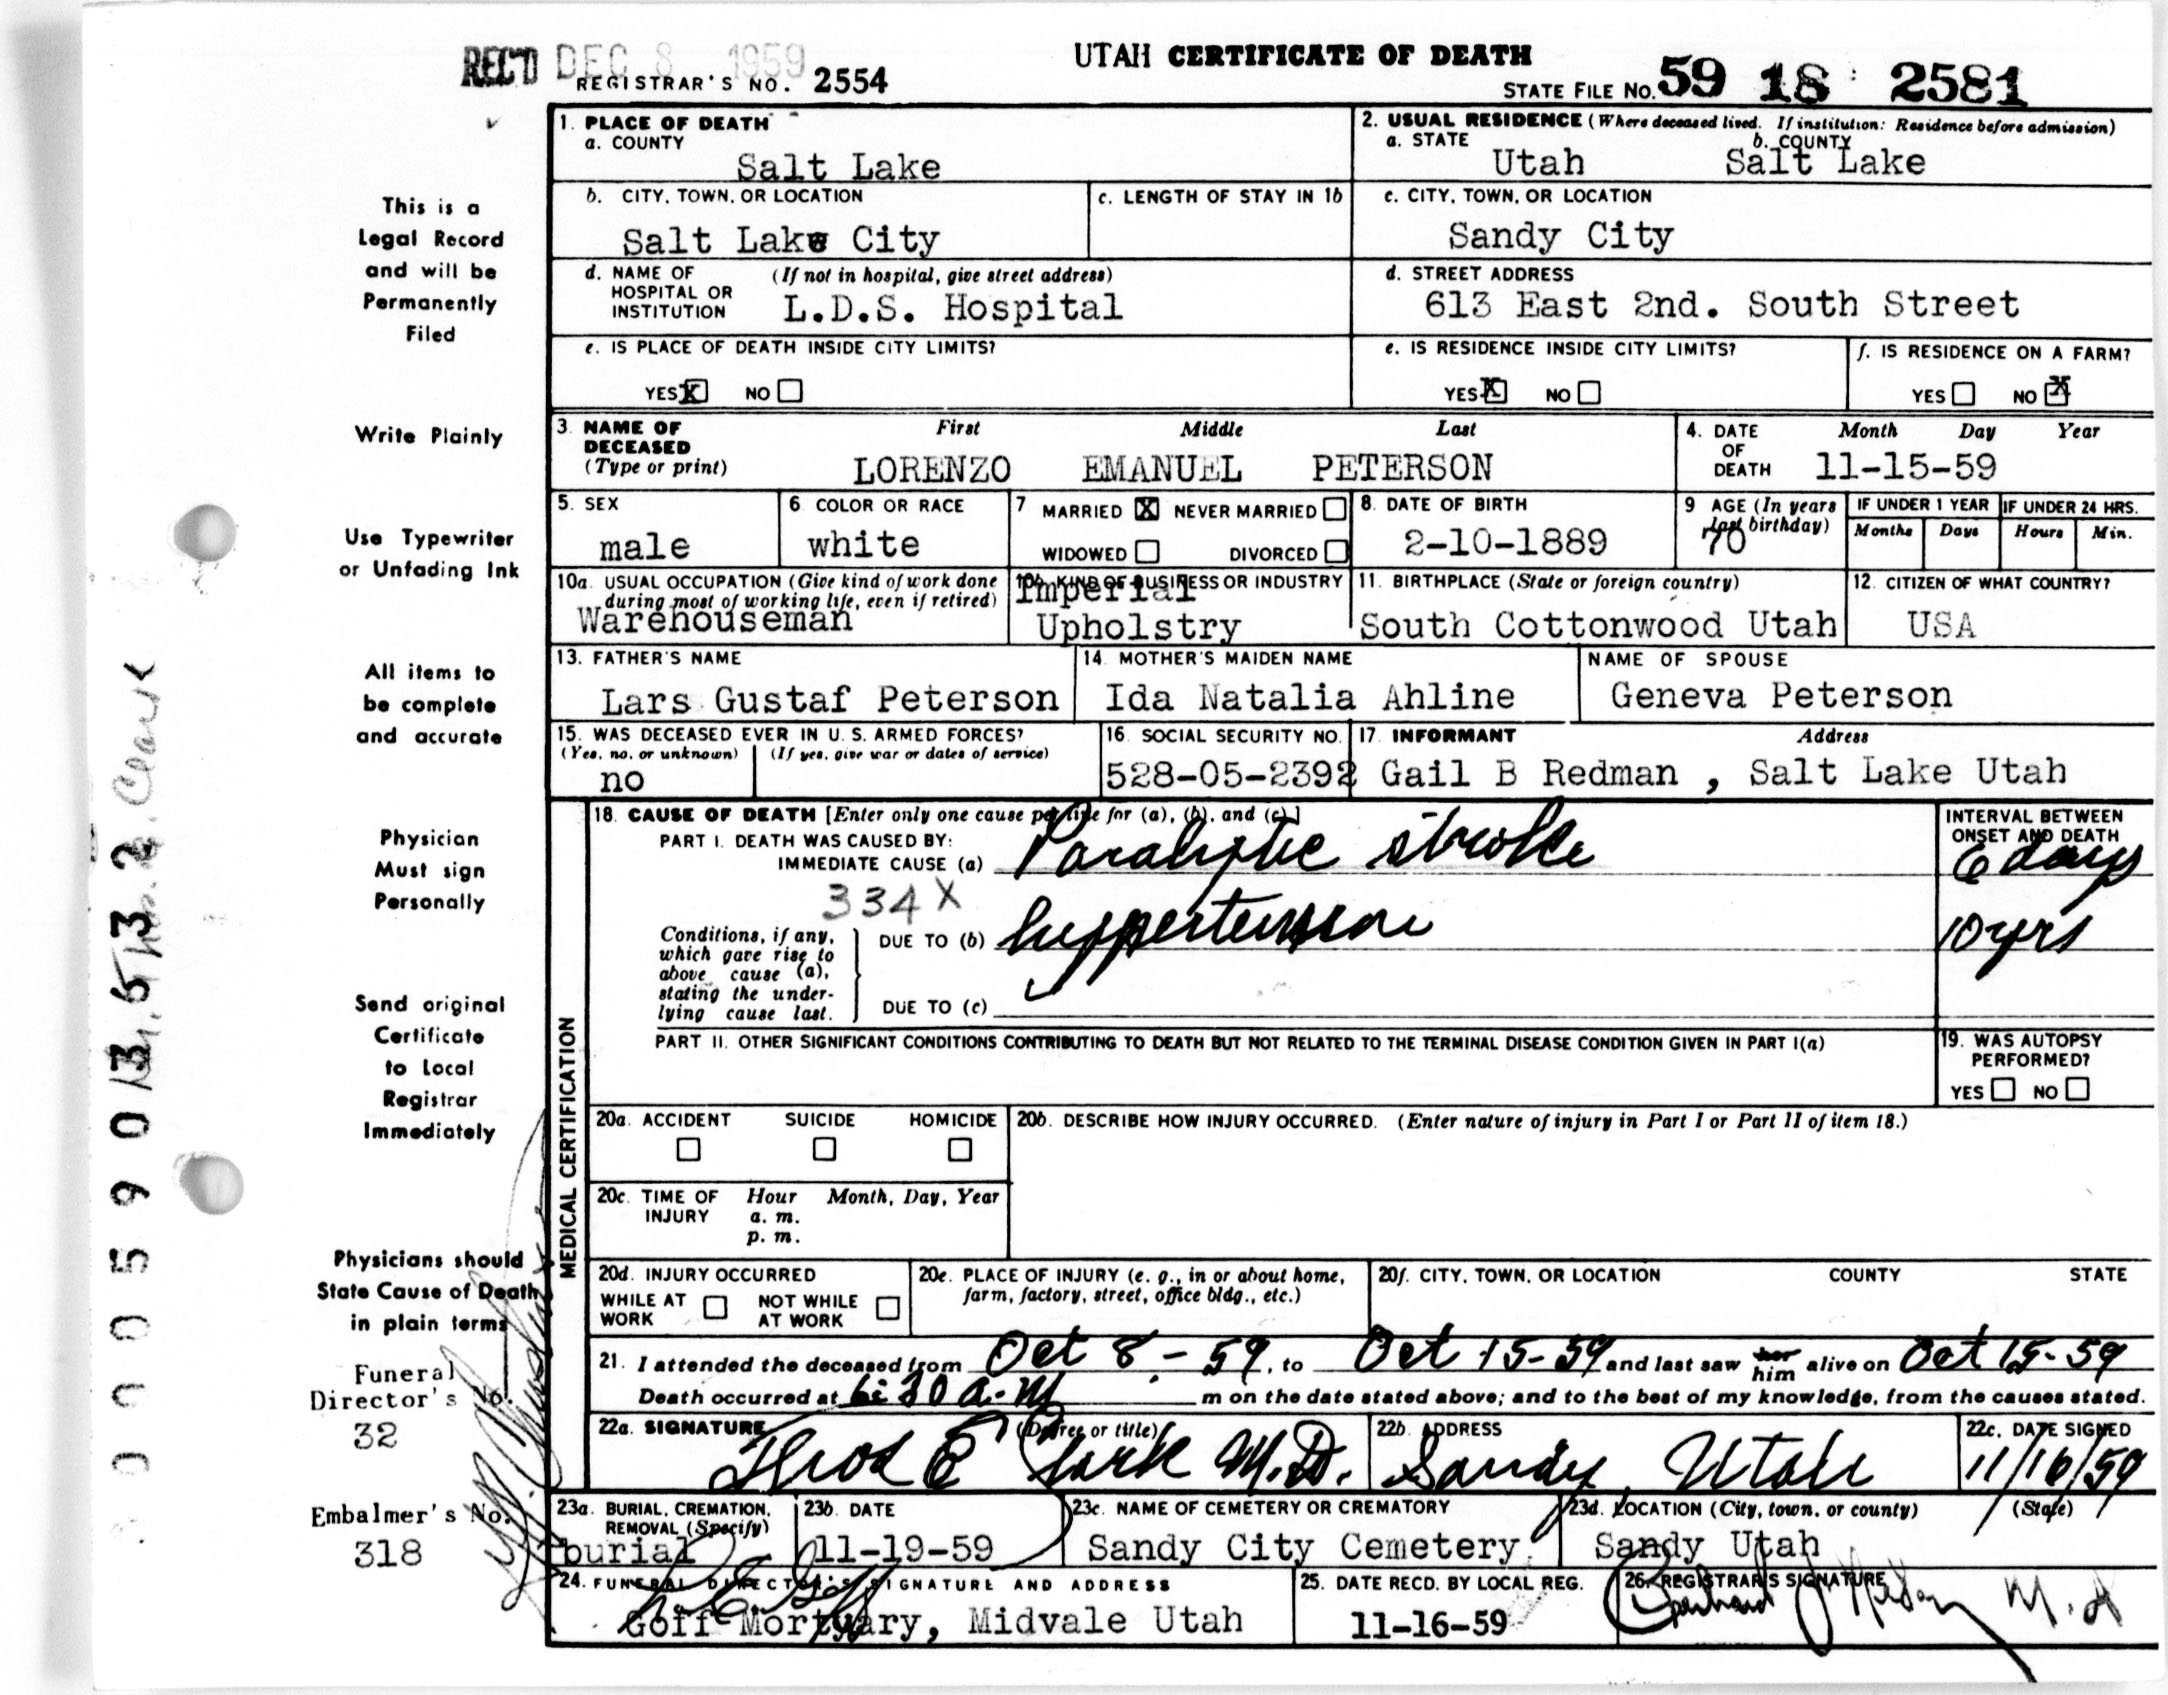 REC'D DEC 8 1959
REGISTRAR'S NO. 2554
UTAH CERTIFICATE OF DEATH
STATE FILE NO. 59 18 2581
This is a
Legal Record
and will be
Permanently
Filed
Write Plainly
Use Typewriter
or Unfading Ink
All items to
be complete
and accurate
Physician
Must sign
Personally
Send original
Certificate
to Local
Registrar
Immediately
Physicians should
State Cause of Death
in plain terms
Funeral
Director's No.
32
Embalmer's No.
318
1. PLACE OF DEATH
a. COUNTY
Salt Lake
2. USUAL RESIDENCE (Where deceased lived. If institution: Residence before admission)
a. STATE b. COUNTY
Utah Salt Lake
b. CITY, TOWN, OR LOCATION
Salt Lake City
c. LENGTH OF STAY IN 1b
c. CITY, TOWN, OR LOCATION
Sandy City
d. NAME OF (If not in hospital, give street address)
HOSPITAL OR
INSTITUTION L.D.S. Hospital
d. STREET ADDRESS
613 East 2nd. South Street
e. IS PLACE OF DEATH INSIDE CITY LIMITS?
YES X NO
e. IS RESIDENCE INSIDE CITY LIMITS?
YES X NO
f. IS RESIDENCE ON A FARM?
YES NO X
3. NAME OF First Middle Last
DECEASED
(Type or print) LORENZO EMANUEL PETERSON
4. DATE Month Day Year
OF
DEATH 11-15-59
5. SEX
male
6 COLOR OR RACE
white
7 MARRIED X NEVER MARRIED
WIDOWED DIVORCED
8. DATE OF BIRTH
2-10-1889
9 AGE (In years
last birthday)
70
IF UNDER 1 YEAR IF UNDER 24 HRS.
Months Days Hours Min.
10a. USUAL OCCUPATION (Give kind of work done
during most of working life, even if retired)
Warehouseman
10b. KIND OF BUSINESS OR INDUSTRY
Imperial
Upholstry
11. BIRTHPLACE (State or foreign country)
South Cottonwood Utah
12. CITIZEN OF WHAT COUNTRY?
USA
13. FATHER'S NAME
Lars Gustaf Peterson
14. MOTHER'S MAIDEN NAME
Ida Natalia Ahline
NAME OF SPOUSE
Geneva Peterson
15. WAS DECEASED EVER IN U. S. ARMED FORCES?
(Yes, no, or unknown) (If yes, give war or dates of service)
no
16. SOCIAL SECURITY NO.
528-05-2392
17. INFORMANT Address
Gail B Redman , Salt Lake Utah
MEDICAL CERTIFICATION
18. CAUSE OF DEATH [Enter only one cause per line for (a), (b), and (c)]
PART I. DEATH WAS CAUSED BY:
IMMEDIATE CAUSE (a) Paralytic stroke
334X
Conditions, if any,
which gave rise to
above cause (a),
stating the under-
lying cause last.
DUE TO (b) hyppertension
DUE TO (c)
INTERVAL BETWEEN
ONSET AND DEATH
6 days
10 yrs
PART II. OTHER SIGNIFICANT CONDITIONS CONTRIBUTING TO DEATH BUT NOT RELATED TO THE TERMINAL DISEASE CONDITION GIVEN IN PART I(a)
19. WAS AUTOPSY
PERFORMED?
YES NO
20a. ACCIDENT SUICIDE HOMICIDE
20b. DESCRIBE HOW INJURY OCCURRED. (Enter nature of injury in Part I or Part II of item 18.)
20c. TIME OF Hour Month, Day, Year
INJURY a. m.
p. m.
20d. INJURY OCCURRED
WHILE AT NOT WHILE
WORK AT WORK
20e. PLACE OF INJURY (e. g., in or about home,
farm, factory, street, office bldg., etc.)
20f. CITY, TOWN, OR LOCATION COUNTY STATE
21. I attended the deceased from Oct 8 - 59, to Oct 15-59 and last saw her him alive on Oct 15-59
Death occurred at 6:30 a.m m on the date stated above; and to the best of my knowledge, from the causes stated.
22a. SIGNATURE (Degree or title)
Thos E Clark M.D.
22b. ADDRESS
Sandy Utah
22c. DATE SIGNED
11/16/59
23a. BURIAL, CREMATION,
REMOVAL (Specify)
burial
23b. DATE
11-19-59
23c. NAME OF CEMETERY OR CREMATORY
Sandy City Cemetery
23d. LOCATION (City, town, or county) (State)
Sandy Utah
24. FUNERAL DIRECTOR'S SIGNATURE AND ADDRESS
Goff Mortuary, Midvale Utah
25. DATE RECD. BY LOCAL REG.
11-16-59
26. REGISTRAR'S SIGNATURE